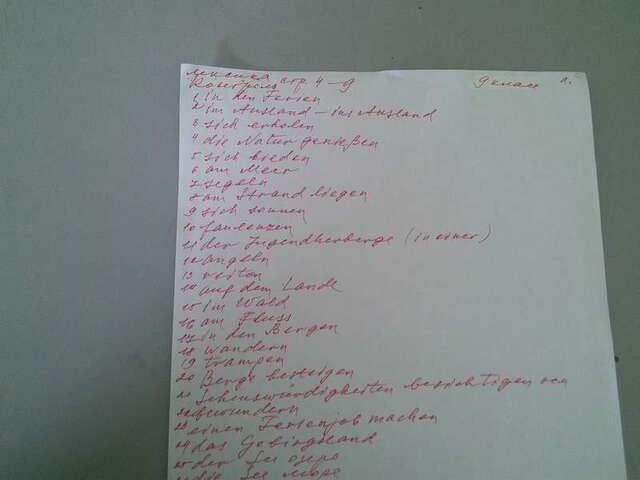 лексика стр 4-9 9 класс
Контроль
1 in den Ferien
2 im Ausland - ins Ausland
3 sich erholen
4 die Natur genießen
5 sich baden
6 am Meer
7 segeln
8 am Strand liegen
9 sich sonnen
10 faulenzen
11 der Jugendherberge (in einer)
12 angeln
13 reiten
14 auf dem Lande
15 im Wald
16 am Fluss
17 in den Bergen
18 wandern
19 trampen
20 Berge besteigen
21 Sehenswürdigkeiten besichtigen von
22 bewundern
23 einen Ferienjob machen
24 das Gebirgsland
25 der See озеро
26 die See море